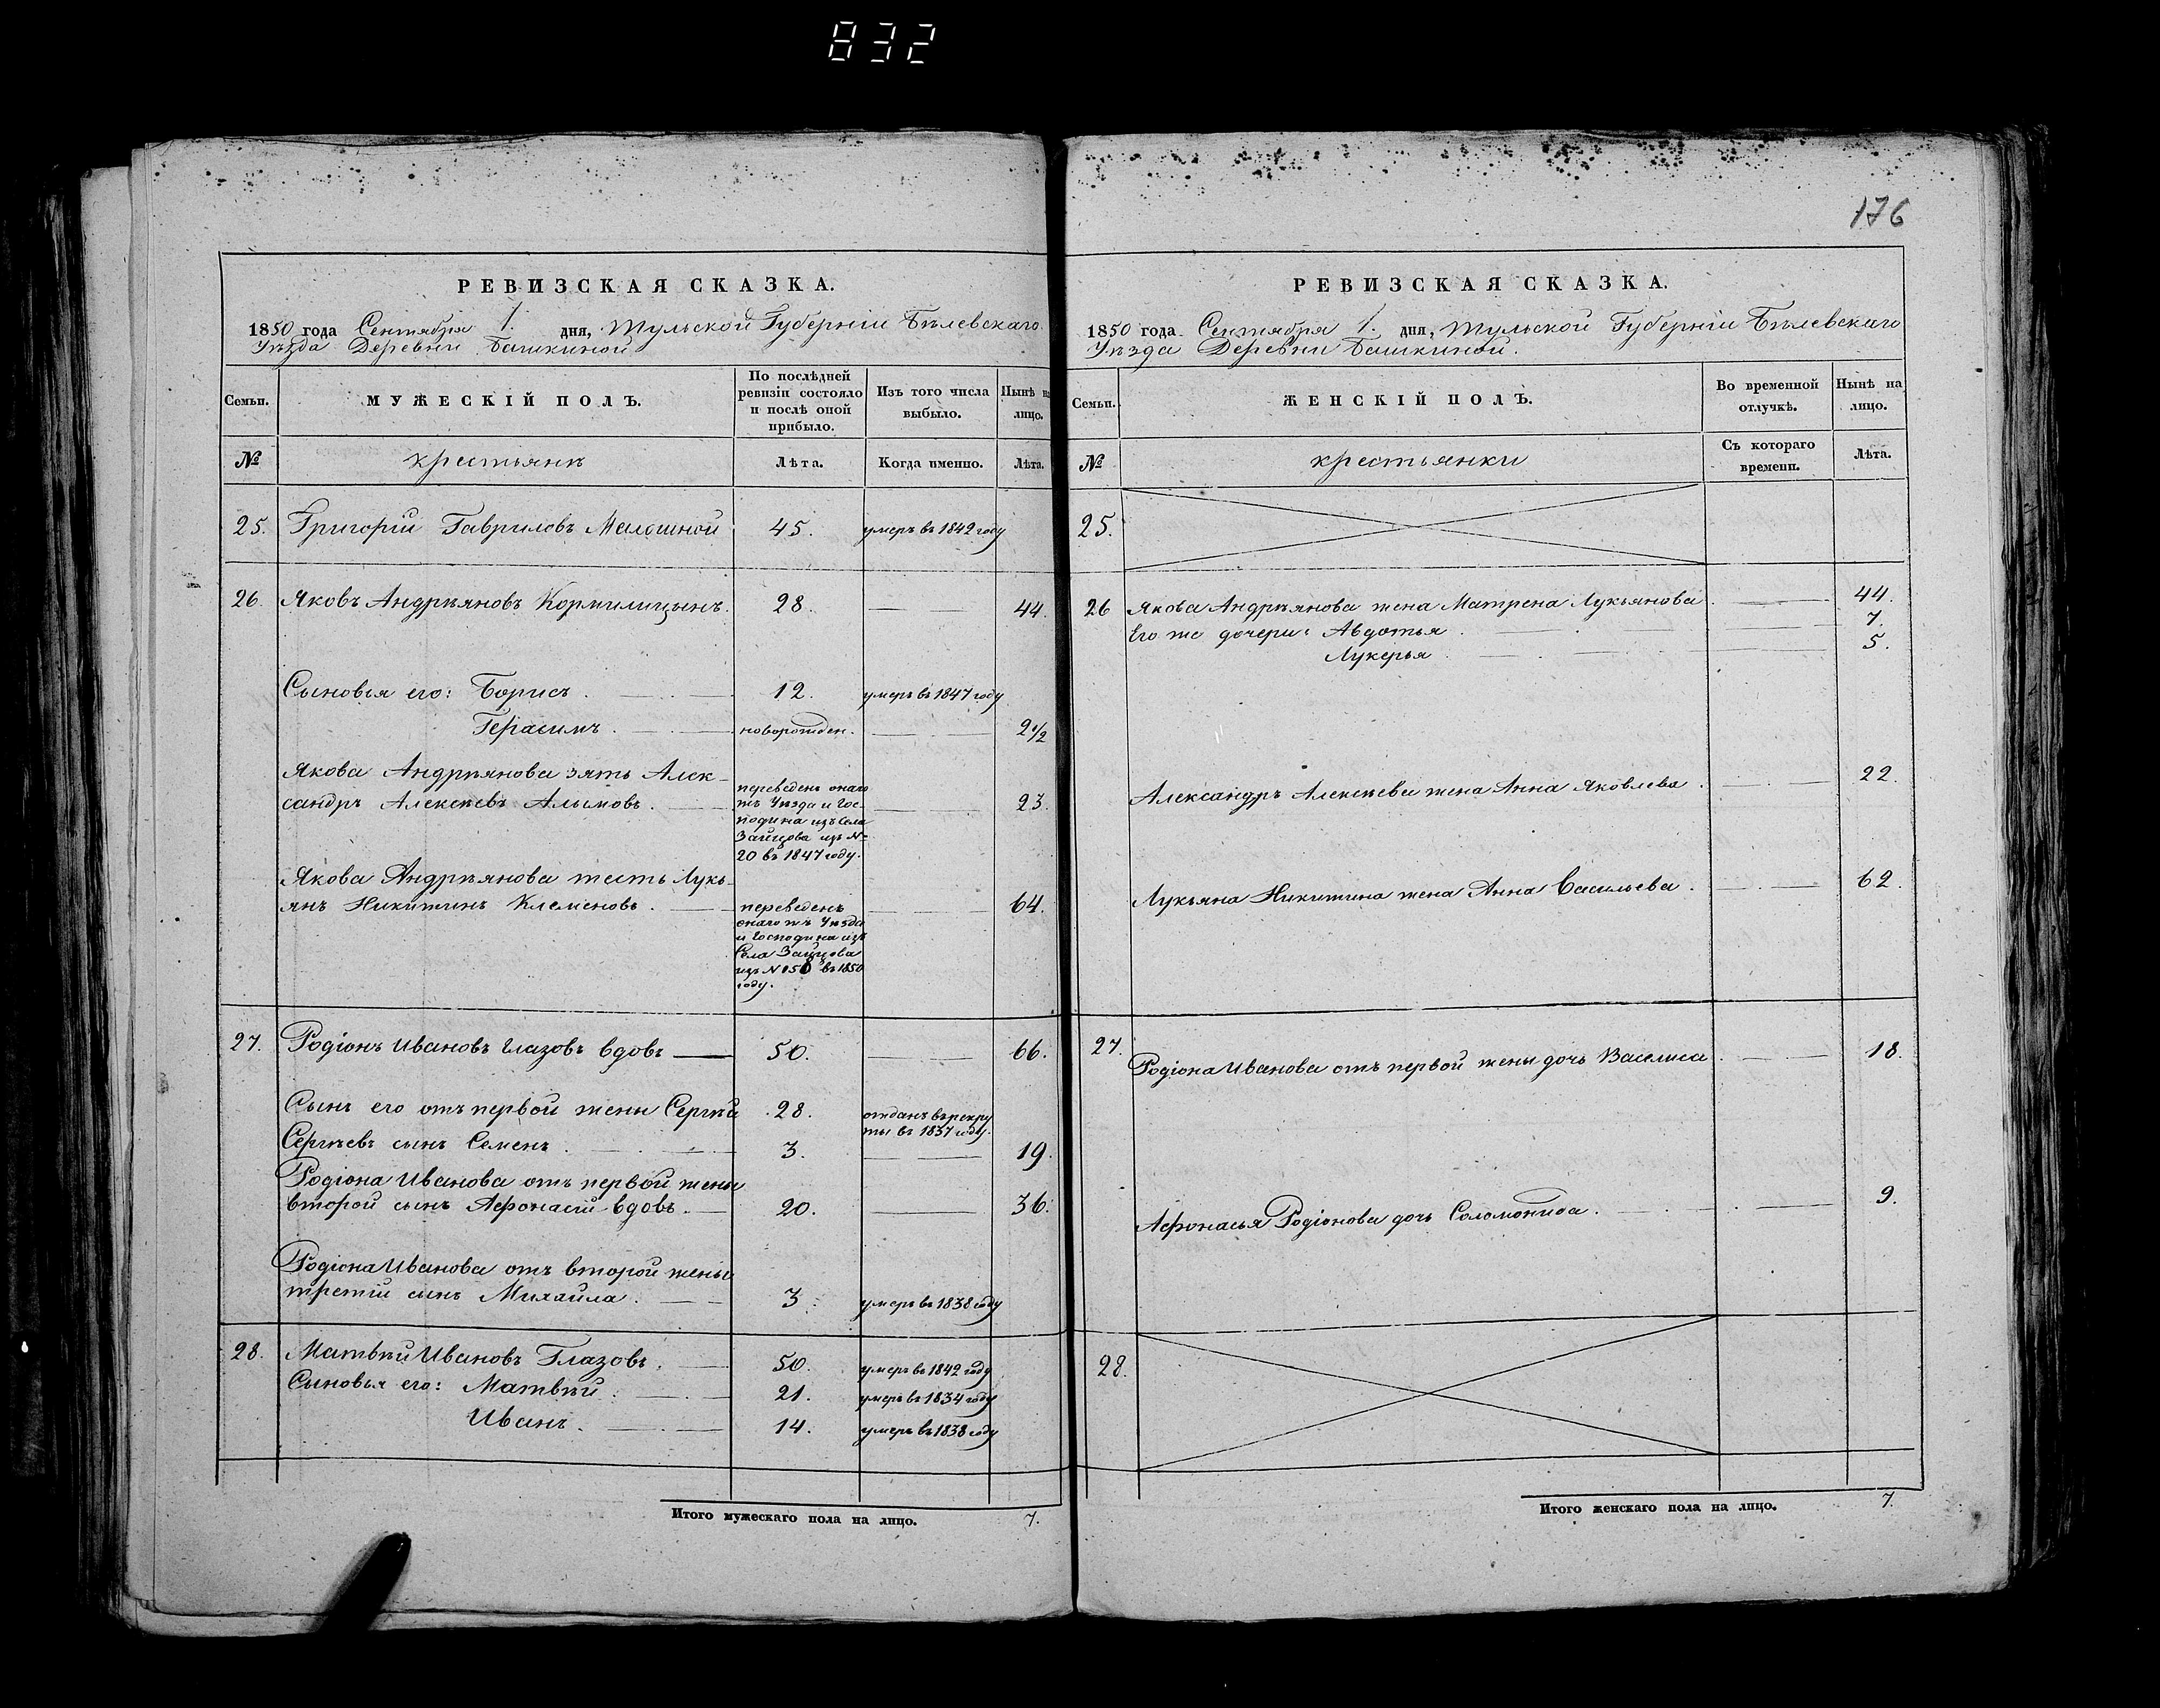 832
176
РЕВИЗСКАЯ СКАЗКА.
1850 года Сентября 1. дня, Тульской Губерніи Бѣлевскаго
Уѣзда Деревни Башкиной
Семьи.
МУЖЕСКІЙ ПОЛЪ.
По послѣдней
ревизіи состояло
и послѣ оной
прибыло.
Изъ того числа
выбыло.
Нынѣ на
лицо.
№
крестьянъ
Лѣта.
Когда именно.
Лѣта.
25. Григорій Гавриловъ Мелошной 45. умеръ въ 1842 году
26. Яковъ Андрѣяновъ Кормилицынъ. 28. 44.
Сыновья его: Борисъ. 12. умеръ въ 1847 году
Герасимъ. новорожден. 2 1/2
Якова Андрѣянова зять Алек-
сандръ Алексѣевъ Алымовъ. 23.
переведенъ онаго
жъ Уѣзда и Гос-
подина изъ Села
Зайцова изъ №
20 въ 1847 году.
Якова Андрѣянова тесть Лукь-
янъ Никитинъ Клеменовъ. 64.
переведенъ
онаго жъ Уѣзда
и Господина изъ
Села Зайцова
изъ № въ 1850
году.
27. Родіонъ Ивановъ Глазовъ вдовъ 50. 66.
Сынъ его отъ первой жены Сергѣй 28. отданъ въ рекру
ты въ 1837 году.
Сергѣевъ сынъ Семенъ. 3. 19.
Родіона Иванова отъ первой жены
второй сынъ Афонасій вдовъ. 20. 36.
Родіона Иванова отъ второй жены
третій сынъ Михайла. 3. умеръ въ 1838 году
28. Матвѣй Ивановъ Глазовъ. 50. умеръ въ 1842 году
Сыновья его: Матвѣй. 21. умеръ въ 1834 году
Иванъ. 14. умеръ въ 1838 году
Итого мужескаго пола на лицо. 7.
РЕВИЗСКАЯ СКАЗКА.
1850 года Сентября 1. дня, Тульской Губерніи Бѣлевскаго
Уѣзда Деревни Башкиной.
Семьи.
ЖЕНСКІЙ ПОЛЪ.
Во временной
отлучкѣ.
Нынѣ на
лицо.
№
крестьянки
Съ котораго
времени.
Лѣта.
25.
26 Якова Андрѣянова жена Матрена Лукьянова. 44.
Его же дочери: Авдотья. 7.
Лукерья. 5.
Александръ Алексѣева жена Анна Яковлева. 22.
Лукьяна Никитина жена Анна Васильева. 62.
27. Родіона Иванова отъ первой жены дочь Василиса. 18.
Афонасья Родіонова дочь Соломонида. 9.
28.
Итого женскаго пола на лицо. 7.